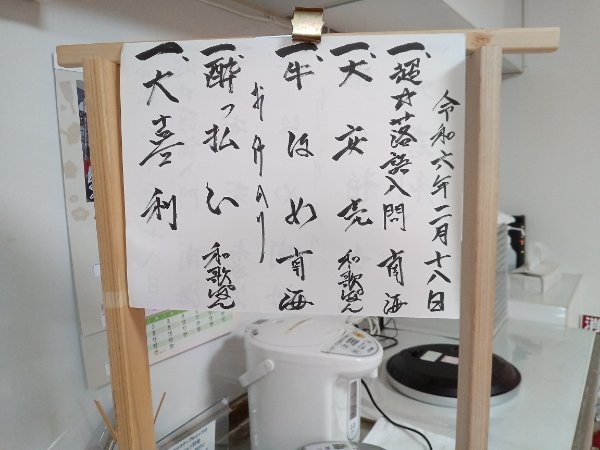 令和六年二月十八日
一、超 落語入門 南海
一、大安売 和歌ぽん
一、牛ほめ 南海
お仲入り
一、酔っ払い 和歌ぽん
一、大喜利
消